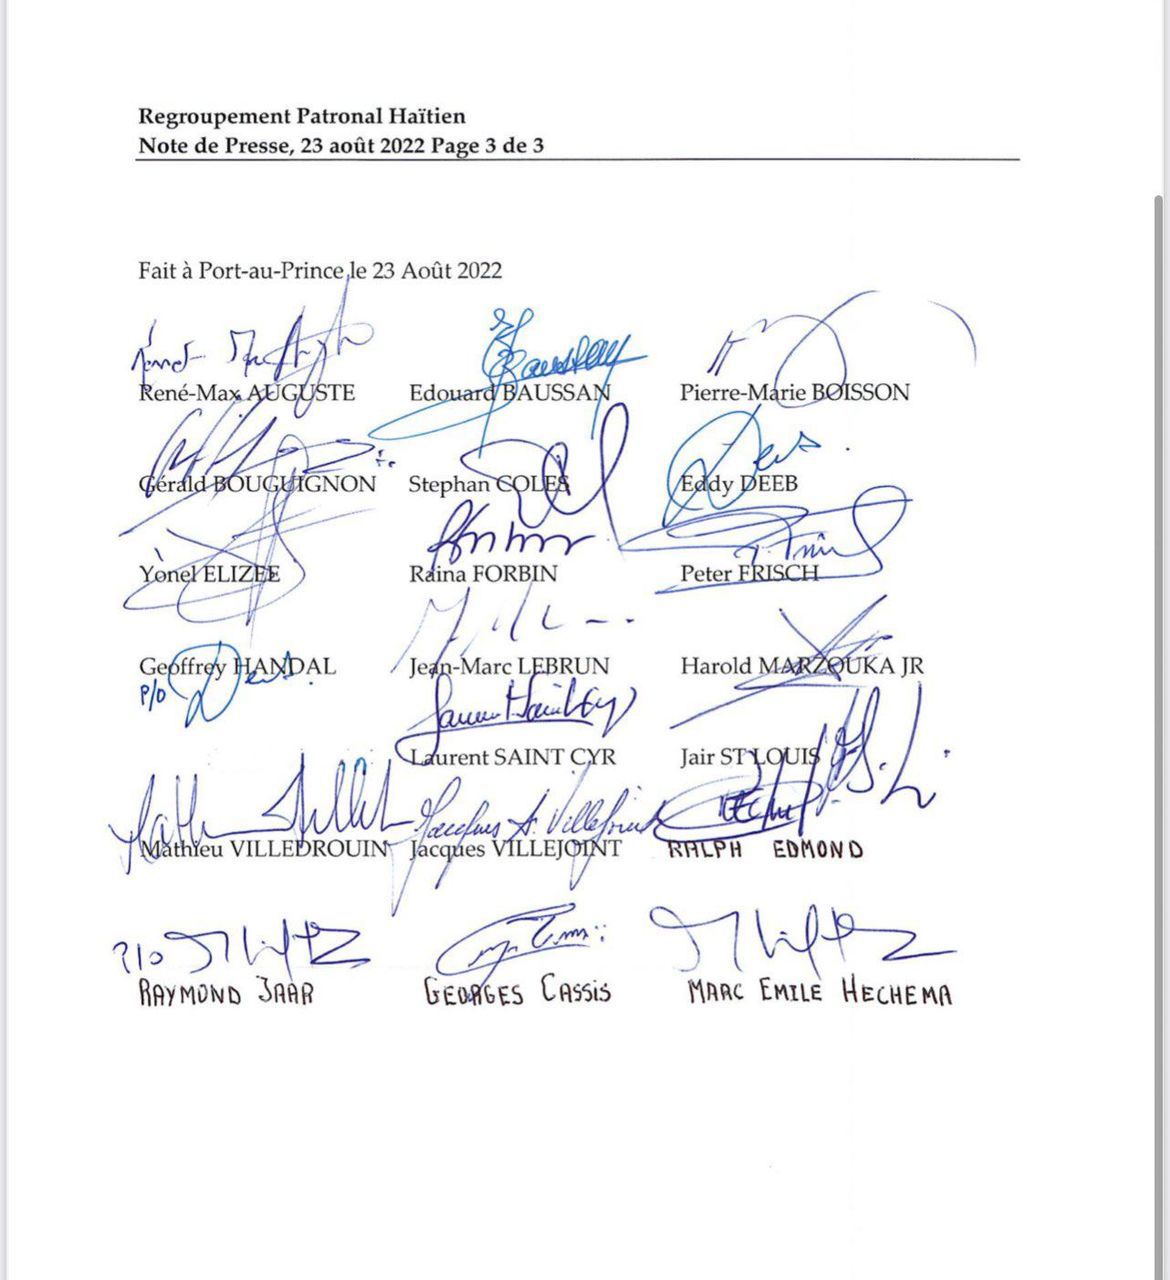 Regroupement Patronal Haïtien
Note de Presse, 23 août 2022 Page 3 de 3
Fait à Port-au-Prince le 23 Août 2022
René-Max AUGUSTE Edouard BAUSSAN Pierre-Marie BOISSON
Gérald BOUGUIGNON Stephan COLES Eddy DEEB
Yonel ELIZEE Raina FORBIN Peter FRISCH
Geoffrey HANDAL Jean-Marc LEBRUN Harold MARZOUKA JR
P/O
Laurent SAINT CYR Jair ST LOUIS
Mathieu VILLEDROUIN Jacques VILLEJOINT RALPH EDMOND
P/O
RAYMOND JAAR GEORGES CASSIS MARC EMILE HECHEMA